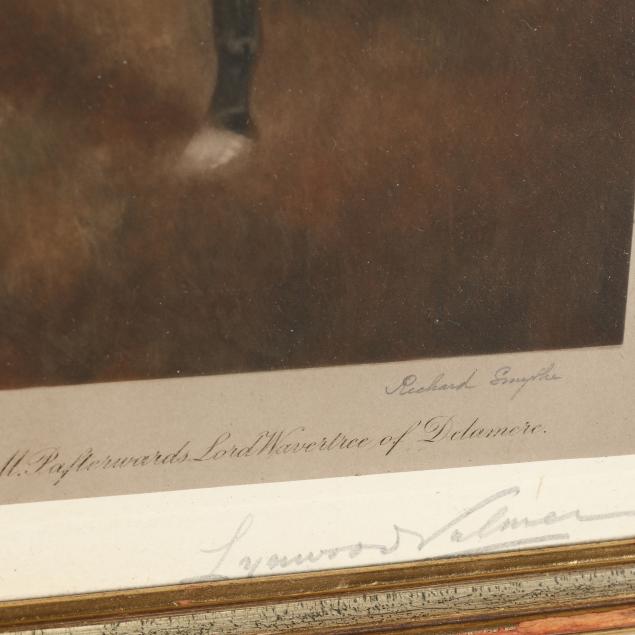 Richard Smythe
M.P. afterwards Lord Wavertree of Delamere.
Lynwood Palmer